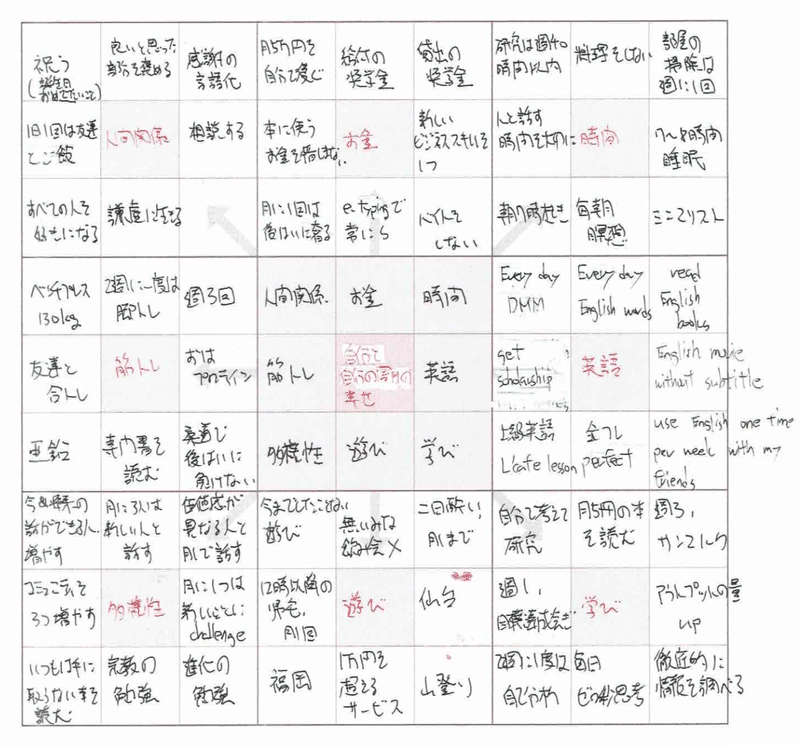 祝う 良いと思った 感謝の 月5万円を 給付の 貸出の 研究は週40 料理をしない 部屋の
自分を褒める 言語化 自分で稼ぐ 奨学金 奨学金 時間以内 掃除は
週に1回
1日1回は友達 人間関係 相談する 本に使う お金 新しい 人と話す 時間 7〜8時間
とご飯 お金を惜しまない ビジネススキルを 時間を大切に 睡眠
1つ
すべての人を 謙虚に生きる 月に1回は 朝7時起き 毎朝 ミニマリスト
好きになる 後ろはいに奢る バイトを 瞑想
しない
ベンチプレス 2週に一度は 週3回 人間関係 お金 時間 Every day Every day read
130kg 脚トレ DMM English words English
books
友達と 筋トレ おは 筋トレ 自分と 英語 get 英語 English movie
合トレ プロテイン 自分の周りの scholarship without subtitle
幸せ
亜鉛 専門書を 後はいに 多様性 遊び 学び 上級英語 金フレ use English one time
読む 負けない L'cafe lesson perfect per week with my
friends
月に3人は 価値感が 今までしたことない 無いみな 二日酔い、 自分で考えて 月5冊の本 週3、
話ができる人 新しい人と 異なる人と 遊び 飲み会× 月1まで 研究 を読む サンエルク
増やす 話す 月1で話す
コミュニティを 多様性 月に1つは 12時以降の 遊び 仙台 週1、 学び アウトプットの量
3つ増やす 新しいことに 帰宅、 目標達成会ぎ up
challenge 月1回
いつもは手に 宗教の 進化の 福岡 1万円を 山登り 2週に1度は 毎日 徹底的に
取らない本を 勉強 勉強 超える 自己分析 ピラミッド思考 情報を調べる
読む サービス